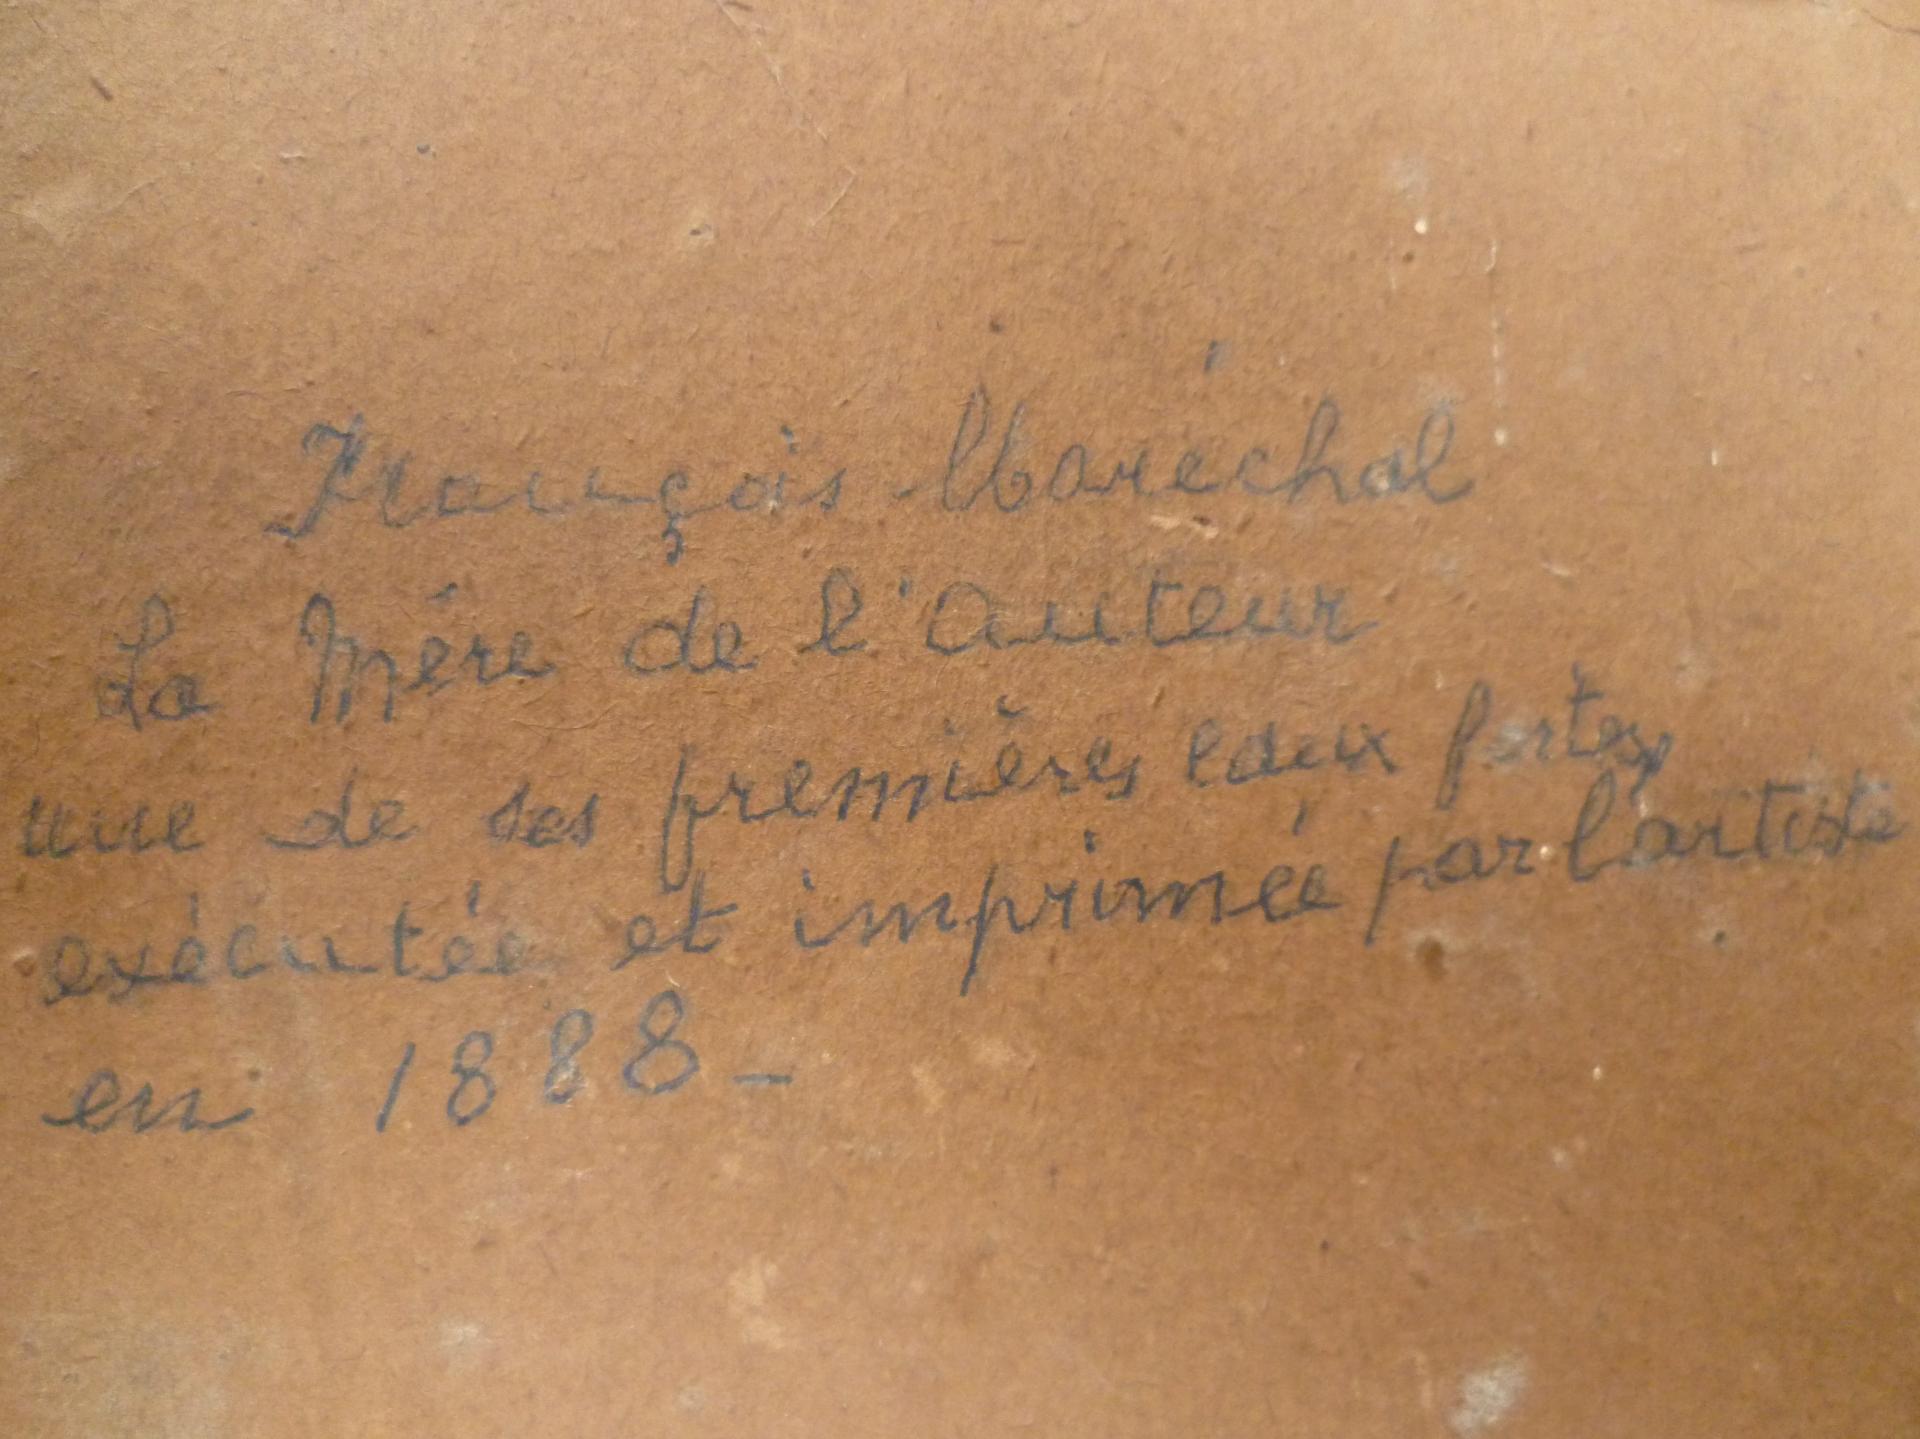 François Maréchal
La Mère de l'Auteur
une de ses premières eaux fortes
exécutée et imprimée par l'artiste
en 1888 -